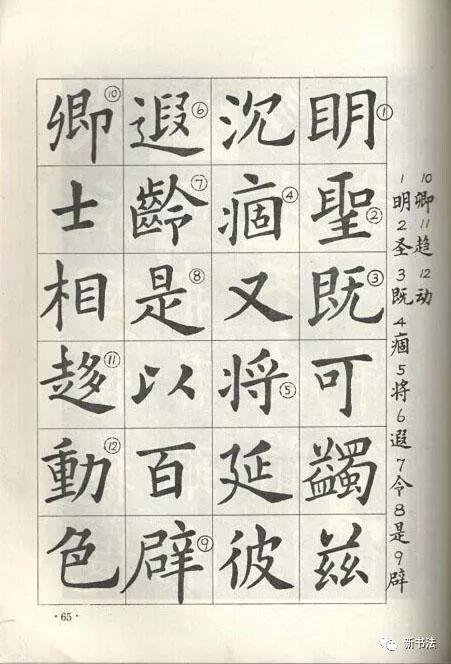 明①聖②既③可蠲兹
沉痼④又将⑤延彼
遐⑥齡⑦是⑧以百辟⑨
卿⑩士相趍⑪動⑫色
1明2圣3既4痼5将6遐7令8是9辟
10卿11趋12动
·65·
新书法